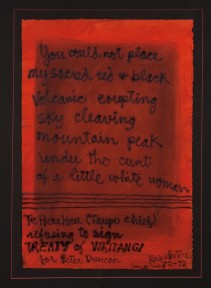 You could not place
my sacred red & black
volcanic erupting
sky cleaving
mountain peak
under the cunt
of a little white woman
Te HeuHeu (Taupo chief)
refusing to sign
TREATY of WAITANGI
for Peter Duncan